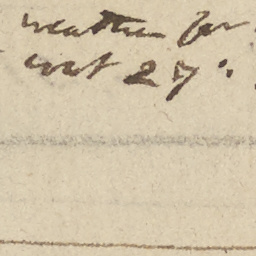 weather for
wet 27°.